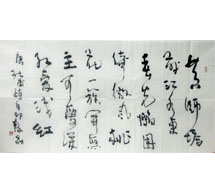 黄师塔
前江水东
春光懒困
倚微风桃
花一簇开无
主可爱深
红爱浅红